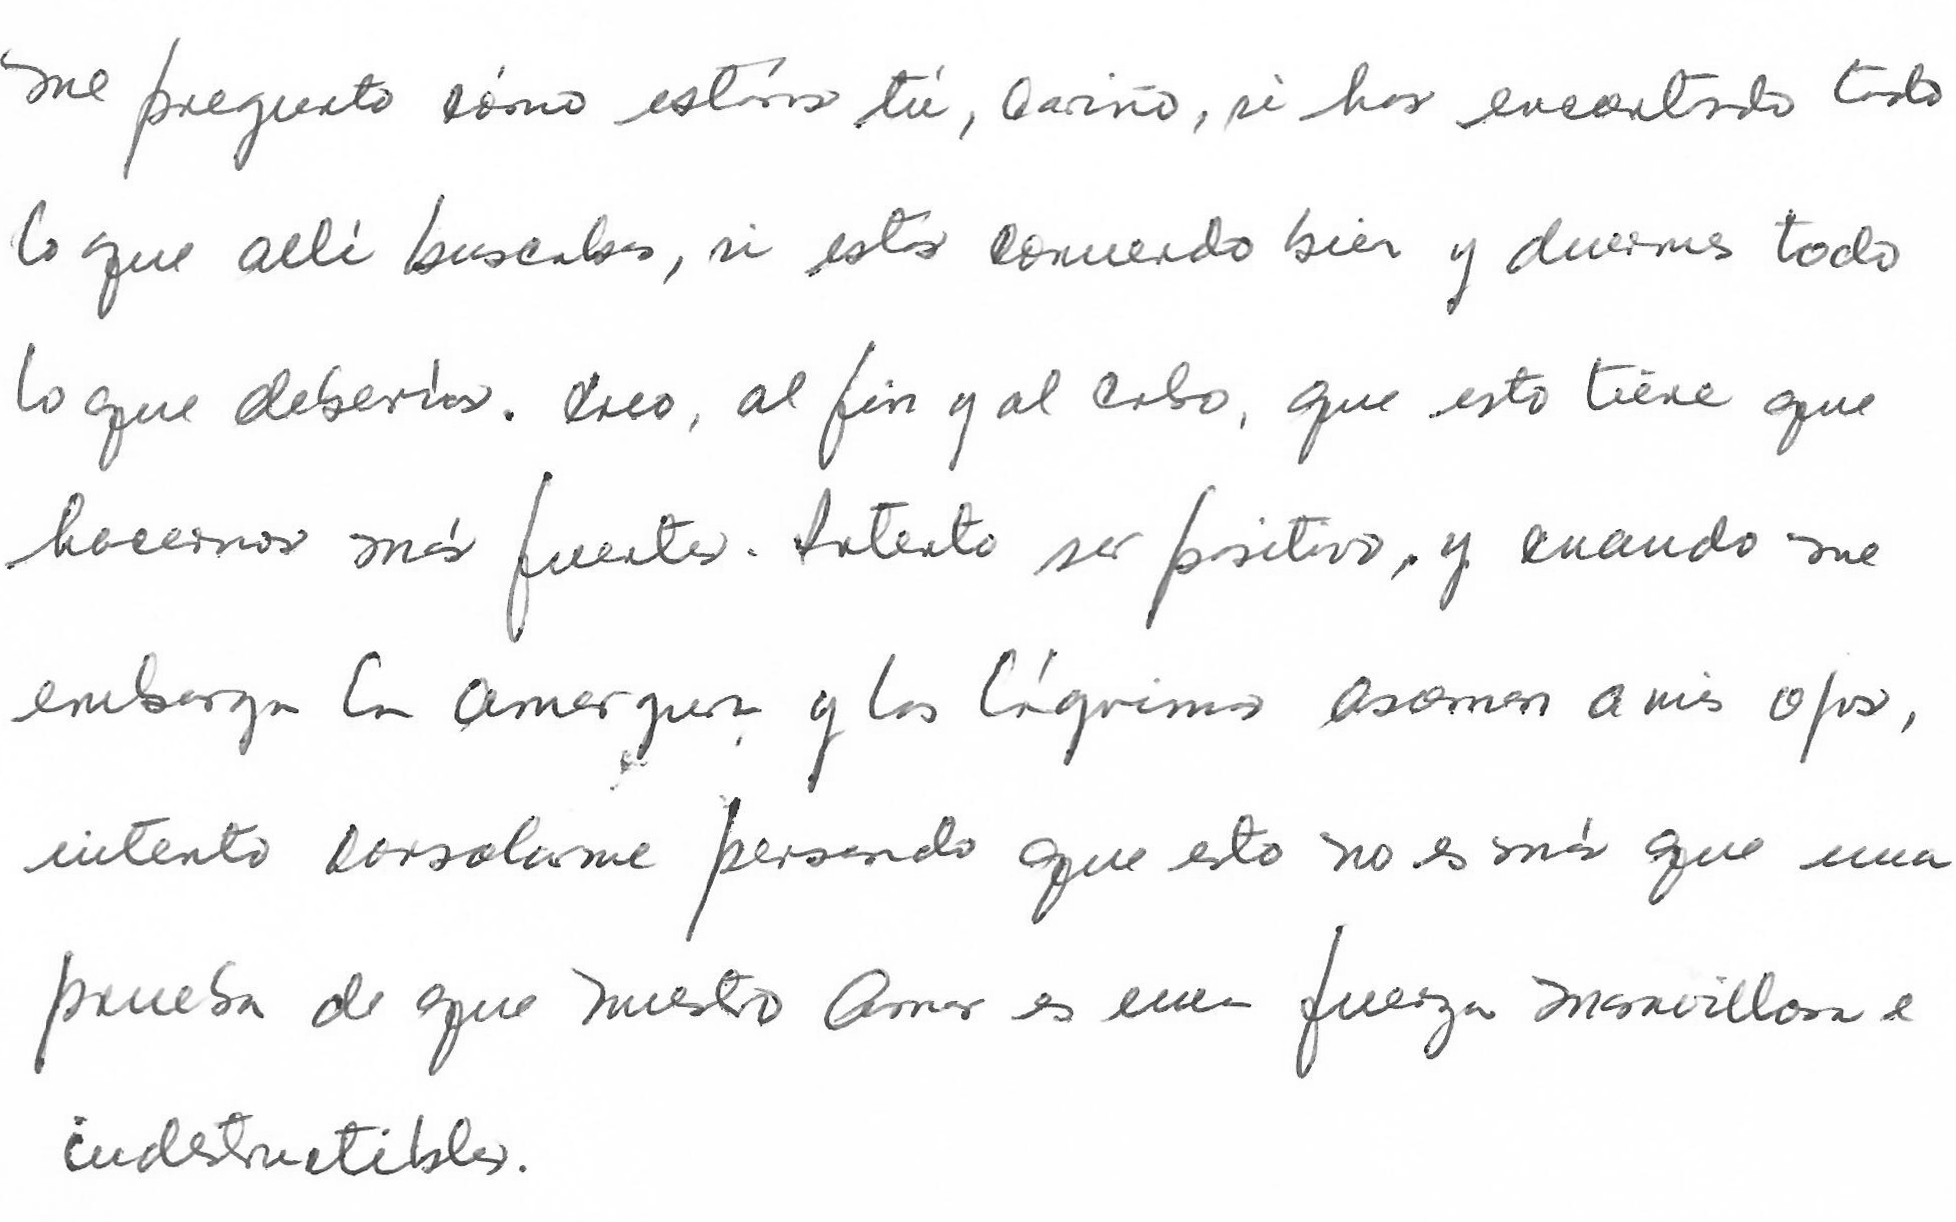 me pregunto cómo estarás tú, cariño, si has encontrado todo
lo que allí buscabas, si estás comiendo bien y duermes todo
lo que deberías. Creo, al fin y al cabo, que esto tiene que
hacernos más fuertes. Intento ser positivo, y cuando me
embarga la amargura y las lágrimas asoman a mis ojos,
intento consolarme pensando que esto no es más que una
prueba de que nuestro amor es una fuerza maravillosa e
indestructibles.